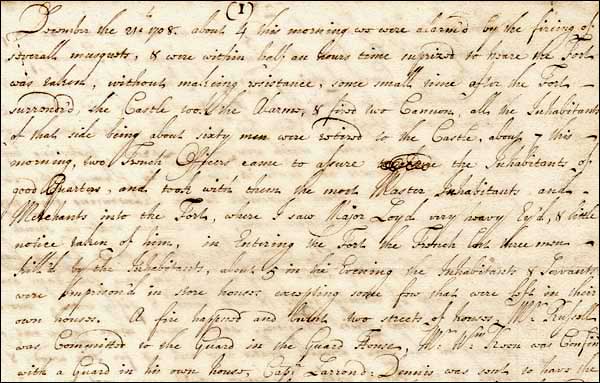 (1)
December the 21th 1708. about 4 this morning we were alarm'd by the fireing of
severall musquets, & were within half an hours time surprized to heare the Fort
was taken, without makeing resistance, some small time after the Fort
surrend'd, the Castle took the Alarme, & fired two Cannon, all the Inhabitants
of that side being about sixty men were retired to the Castle, about 7 this
morning, two French Officers came to assure the Inhabitants of
good Quarters, and took with them the most Master Inhabitants and
Merchants into the Fort, where I saw Major Loyd very heavy Ey'd, & little
notice taken of him, in Entering the Fort the French lost three men
kill'd by the Inhabitants, about 5 in the Evening the Inhabitants & Servants
were Imprison'd in store houses excepting some few that were left in their
own houses. A fire happned and burnt two streets of houses, Mr.
was Committed to the Guard in the Guard House, Mr. Wm. Keen was Confin'd
with a Guard in his own house, Capt. Larrond: Dennis was sent to have the